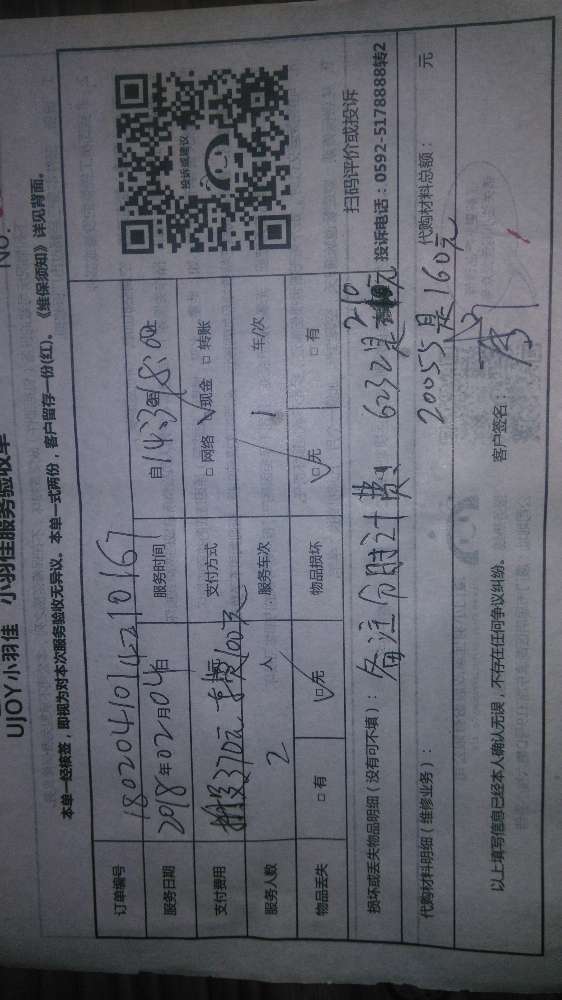 UJOY小羽佳 小羽佳服务验收单
NO.
本单一经核签，即视为对本次服务验收无异议。本单一式两份，客户留存一份(红)。《维保须知》详见背面。
订单编号 18020410142210167
服务日期 2018年02月04日 服务时间 自14:30至18:00止
支付费用 370元 车费100元 支付方式 □网络 ☑现金 □转账
服务人数 2 人 服务车次 1 车/次
物品丢失 □有 ☑无 物品损坏 ☑无 □有
投诉或建议
扫码评价或投诉
投诉电话：0592-5178888转2
损坏或丢失物品明细（没有可不填）： 备注分时计费， 6232是210元
代购材料明细（维修业务）： 20055是160元 代购材料总额： 元
以上填写信息已经本人确认无误，不存在任何争议纠纷。 客户签名：